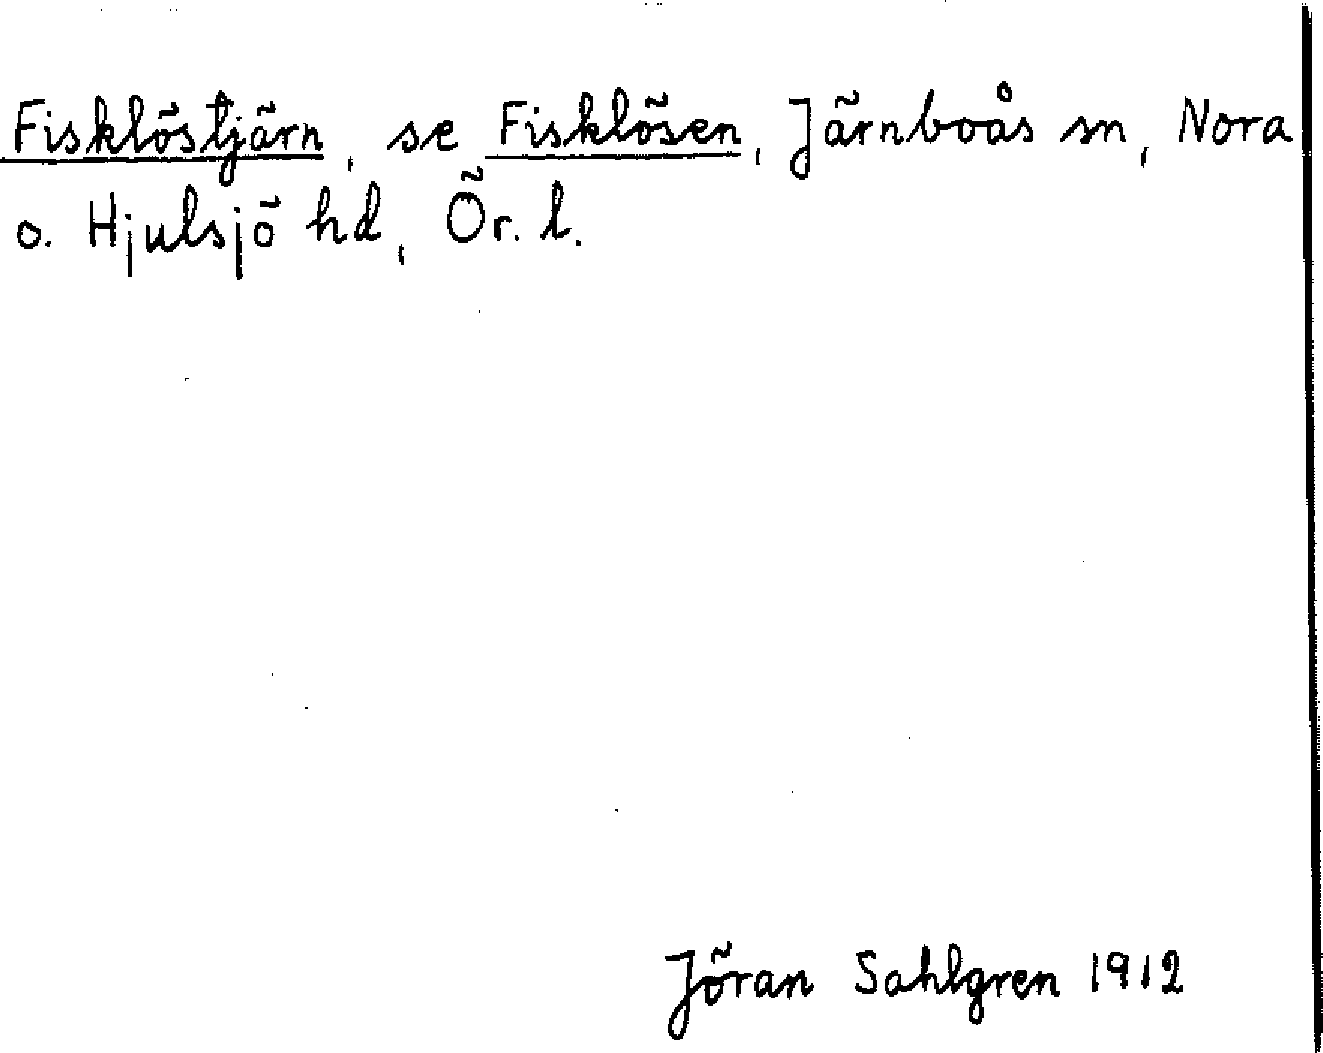 Fisklöstjärn, se Fisklösen, Järnboås sn, Nora
o. Hjulsjö hd, Ör. l.
Jöran Sahlgren 1912